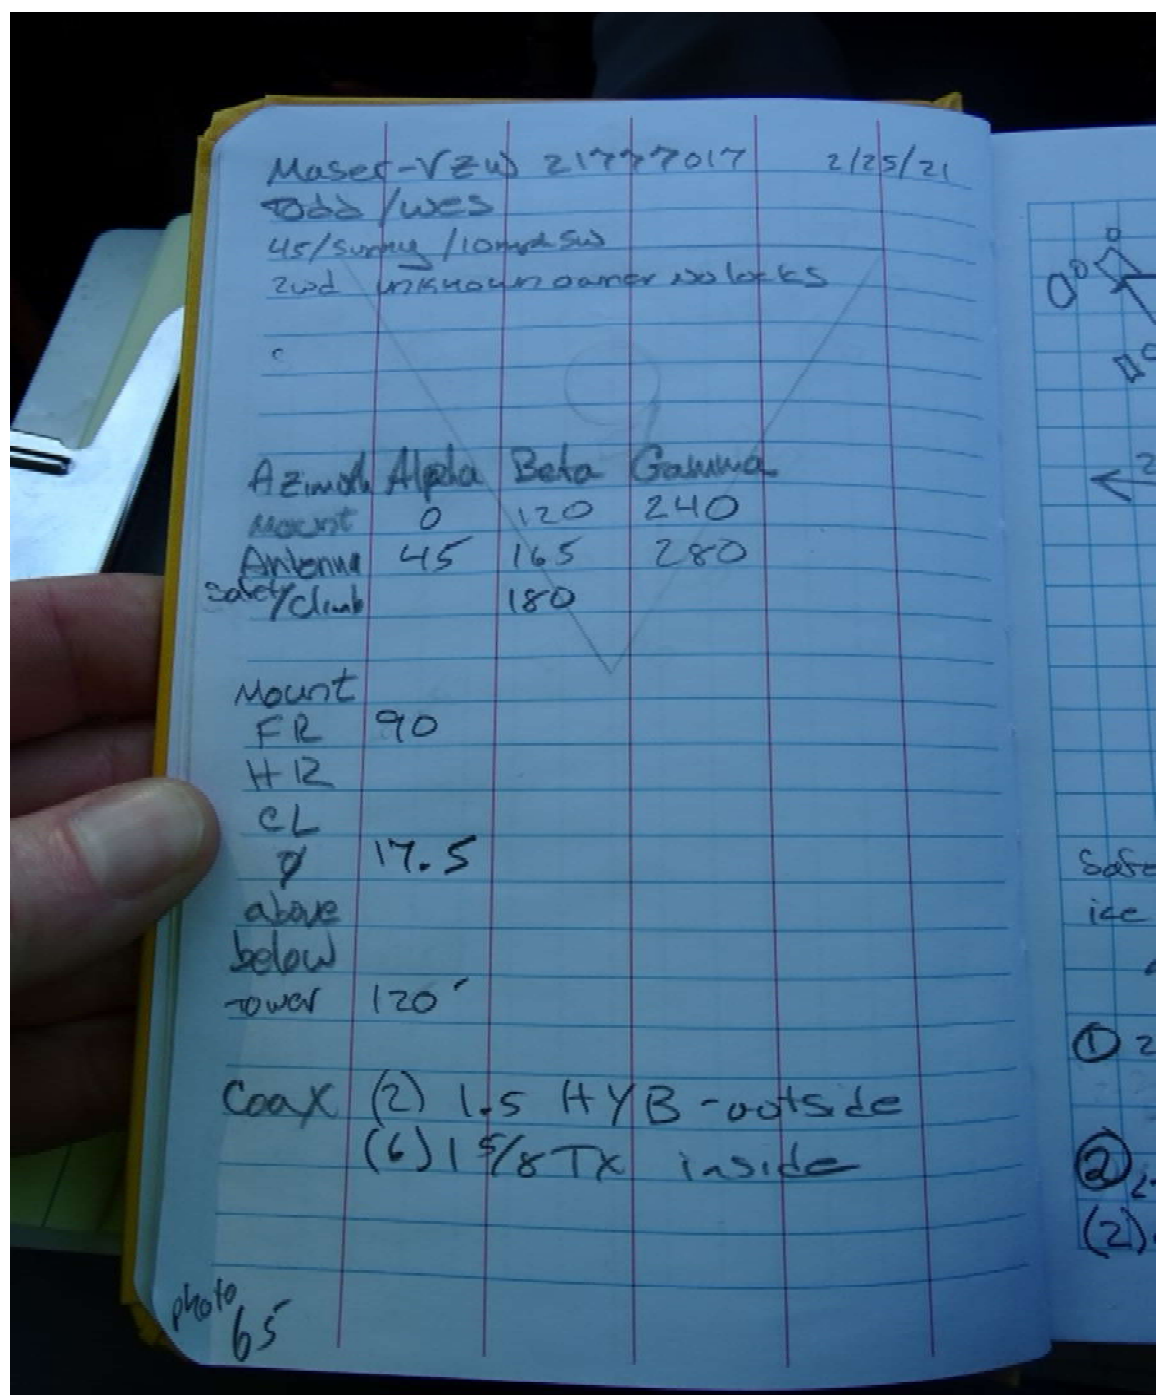 Maser-VZW 21777017 2/25/21
Todd/Wes
45/Sunny/10mph SW
2wd unknown owner no locks
Azimuth Alpha Beta Gamma
Mount 0 120 240
Antenna 45 165 280
Safety/Climb 180
Mount
FR 90
HR
CL
Ø 17.5
above
below
Tower 120'
Coax (2) 1.5 HYB - outside
(6) 1 5/8 TX inside
photo
65
2
Safe
ice
① 2
②
(2)